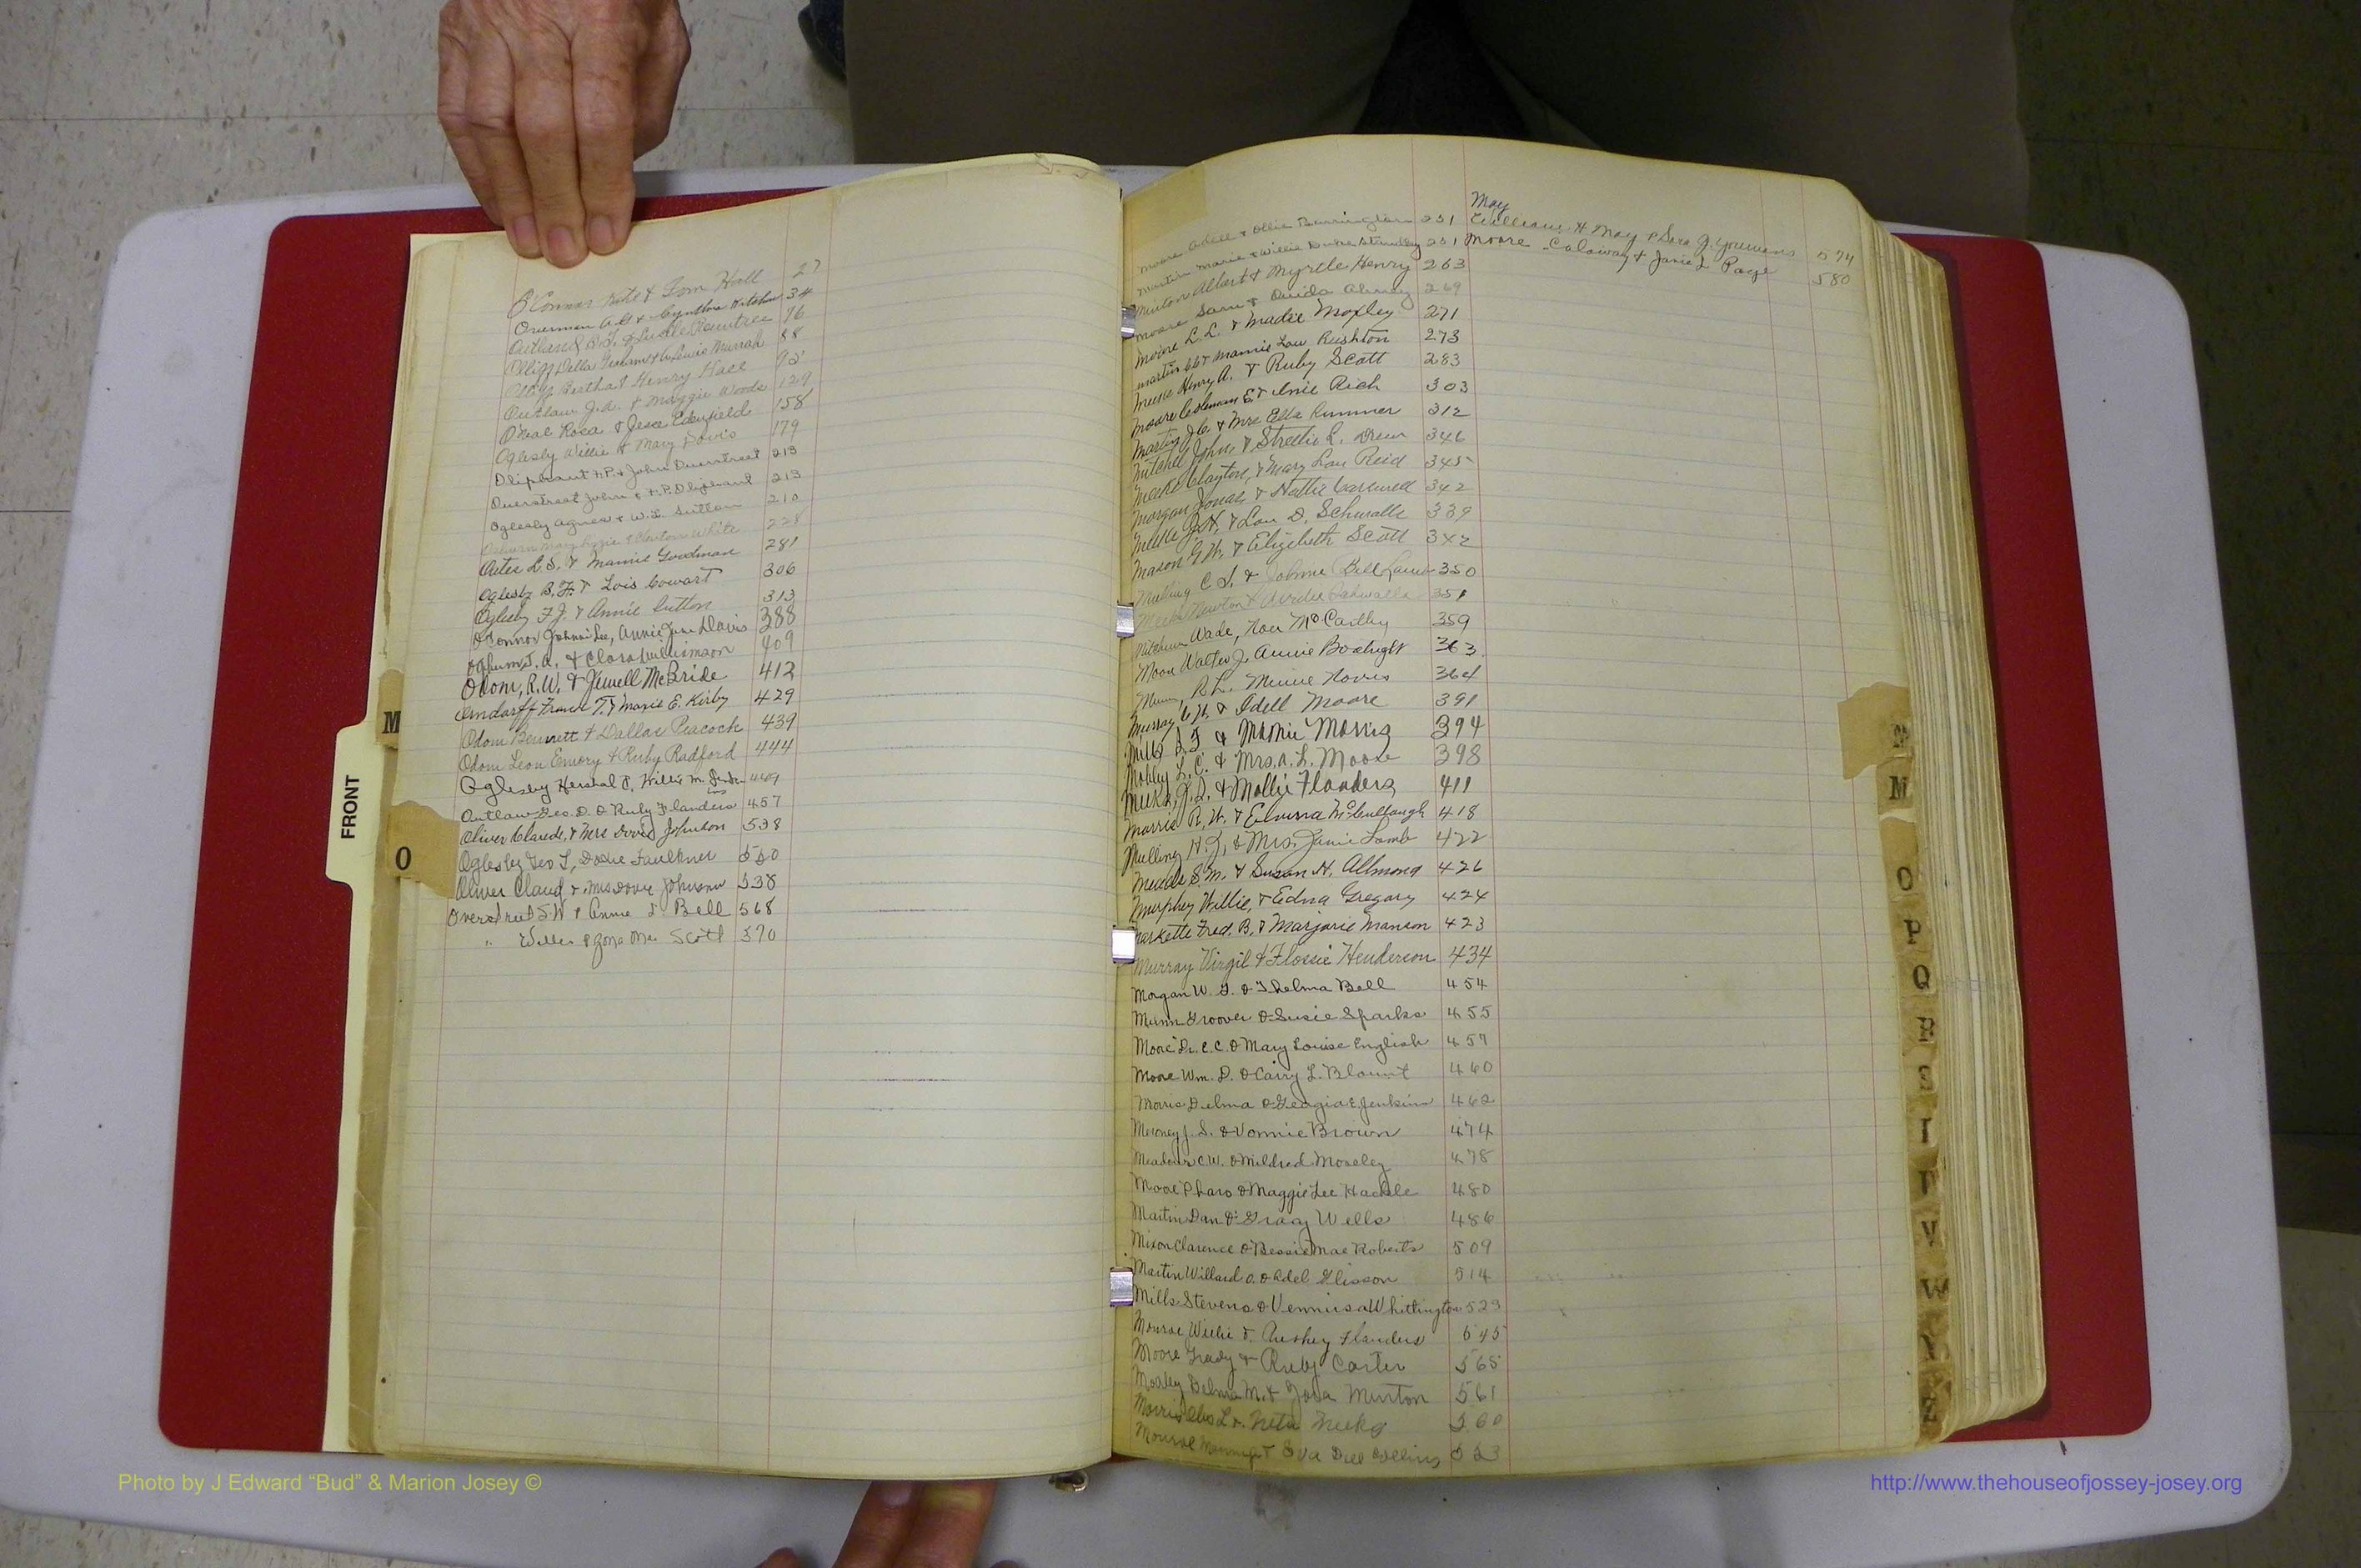 O'Connor Kate & Tom Hall 27
Overman A.G & Cynthia 34
Outland B.T. & Rountree 76
Della & Lewis Murrah 88
Bertha & Henry Hall
Outlaw J.A. & Maggie Woods 129
O'Neal Rosa & Jesse Edenfield 158
Oglesby Willie & Mary Davis 179
Oliphant F.P. & John Overstreet 213
Overstreet John & F.P. Oliphant 213
Oglesby Agnes & W.L. Sutton 210
White 228
L.S. & Mamie Goodman 281
Oglesby B.F. & Lois Cowart 306
Oglesby F.J. & Annie Sutton 313
O'Connor Johnnie Lee, Annie June Davis 388
J.A. & Clara Williamson 409
Odom, R.W. & Jewell McBride 412
Orndorff Francis T. & Marie E. Kirby 429
Odom Bennett & Dallas Peacock 439
Odom Leon Emory & Ruby Radford 444
Oglesby Hershal P. Willie M.
Outlaw Geo. D. & Ruby Flanders 457
Oliver Claude, & Mrs Dovie Johnson 538
Oglesby Geo T, Doxie Faulkner
Oliver Claud & Mrs Dovie Johnson 538
Overstreet S.W & Annie L. Bell 568
" Willis & Zona Mae Scott 570
M
O
FRONT
Moore Odell & Ollie Barrington 231
Martin Marie & Willie Drake 231
Minton Albert & Myrtle Henry 263
Moore Sam & Ouida 269
Moore L.L. & Madie Moxley 271
Martin & Mannie Lou Rushton 273
Henry A. & Ruby Scott 283
Moore Coleman E. & Rich 303
Martin J.C. & Mrs Ella Rimmer 312
Mitchell John & L. Drew 346
Meeks Clayton, & Mary Lou Reid 345
Morgan Jonas & Hattie Carswell 342
Meeks J.H. & Lou D. Schwalls 339
Mason G.W. & Elizabeth Scott 342
C.L. & Johnnie Bell Lamb 350
Meeks Newton & 351
Wade, McCarthy 359
Moore Walter J. Annie Boatright 363
R.L. Minnie Norris 364
Murray & Idell Moore 391
Mills & Mamie Morris 394
Mobley L.C. & Mrs. A.L. Moore 398
Meeks, J.D. & Mollie Flanders 411
Morris R.H. & McCullough 418
Mulling H.J. & Mrs. Janie Lamb 422
Meade S.M. & Susan H. Allmong 426
Murphey Willie, & Edna Gregory 424
Markette Fred. B. & Marjorie Manson 423
Murray Virgil & Flossie Henderson 434
Morgan W. G. & Thelma Bell 454
Munn Groover & Susie Sparks 455
Moore Dr. C.C. & Mary Louise English 457
Moore Wm. D. & Carry L. Blount 460
Morris Delma & Georgia E. Jenkins 462
J.S. & Vonnie Brown 474
Meadows C.W. & Mildred Moseley 478
Moore Pharo & Maggie Lee Hackle 480
Martin Dan & Gracy Wells 486
Mixon Clarence & Bessie Mae Roberts 509
Martin Willard O. & Adel Glisson 514
Mills Stevens & Whittington 529
Monroe Willie & Flanders 545
Moore Grady & Ruby Carter 565
Delma M. & Minton 561
Morris L & Neta Meeks 560
Monroe & Eva Dell
May
William H May & Sara J. Youmans 574
Moore Caloway & Janie L Page 580
M
O
P
Q
R
S
T
V
W
Photo by J Edward “Bud” & Marion Josey ©
http://www.thehouseofjossey-josey.org